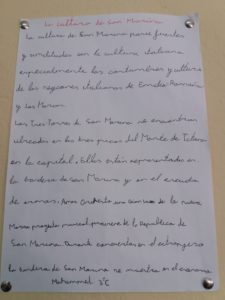 La cultura de San Marino
La cultura de San Marino posee fuertes
y similitudes con la cultura italiana
especialmente las costumbres y cultura
de las regiones italianas de Emilia Romaña
y Las Marcas.
Las Tres Torres de San Marino se encuentran
ubicadas en los tres picos del Monte de Titano
en la capital. Ellas están representadas en
la bandera de San Marino y en el escudo
de armas.
Musical proyecto de la República de
San Marino. Durante conciertos en el extranjero
la bandera de San Marino se muestra en el escenario
Mohammed 3ºC